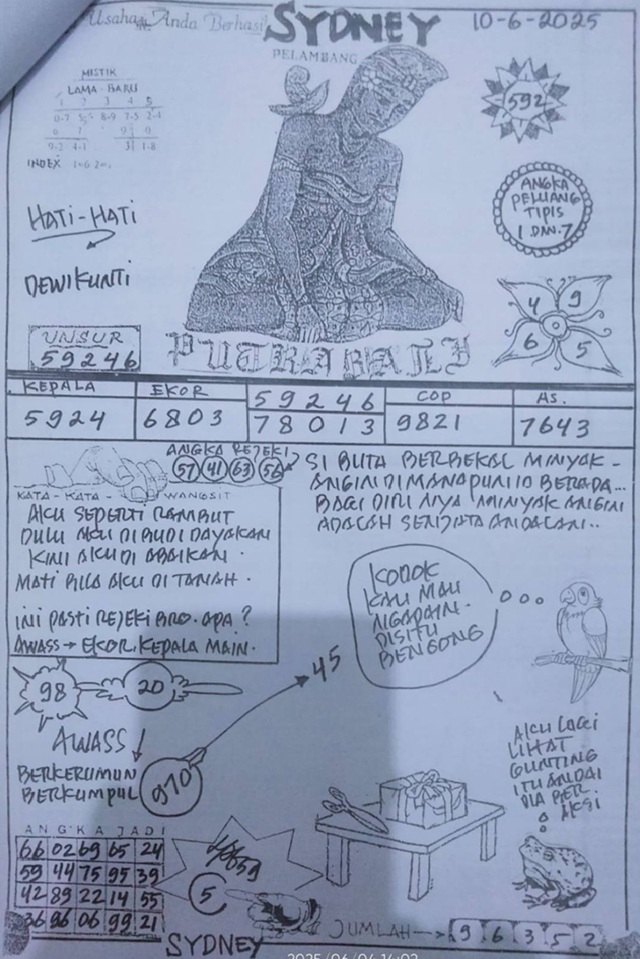 Usaha Anda Berhasil
SYDNEY
10-6-2025
PELAMBANG
MISTIK
LAMA - BARU
1 2 3 4 5
0-7 8-9 7-5 2-4
INDEX
592
ANGKA
PELUANG
TIPIS
1 DAN 7
HATI-HATI
DEWI KUNTI
4 9
6 5
UNSUR
59246
PUTRA BALI
KEPALA EKOR 59246 COP AS.
5924 6803 78013 9821 7643
ANGKA REJEKI
57 41 63 56
KATA - KATA - WANGSIT
AKU SEPERTI RAMBUT
DULU AKU DIBUDIDAYAKAN
KINI AKU DI ABAIKAN.
MATI PULA AKU DI TANAH.
INI PASTI REJEKI BRO. APA?
AWASS → EKOR, KEPALA MAIN.
SI BUTA BERBEKAL MINYAK -
ANGIN DIMANAPUN ID BERADA...
BAGI DIRI NYA MINYAK ANGIN
ADALAH SENJATA ANDALAN..
KODOK
KAU MAU
NGAPAIN.
DISITU
BENGONG
45
98 20
AWASS
BERKERUMUN
BERKUMPUL
970
AKU LAGI
LIHAT
GUNTING
ITU ANDAI
DIA BER.
AKSI
ANGKA JADI
66 02 69 65 24
59 44 75 95 39
42 89 22 14 55
36 96 06 99 21
5
JUMLAH → 9 6 3 5 2
SYDNEY
2025/06/04 14:02